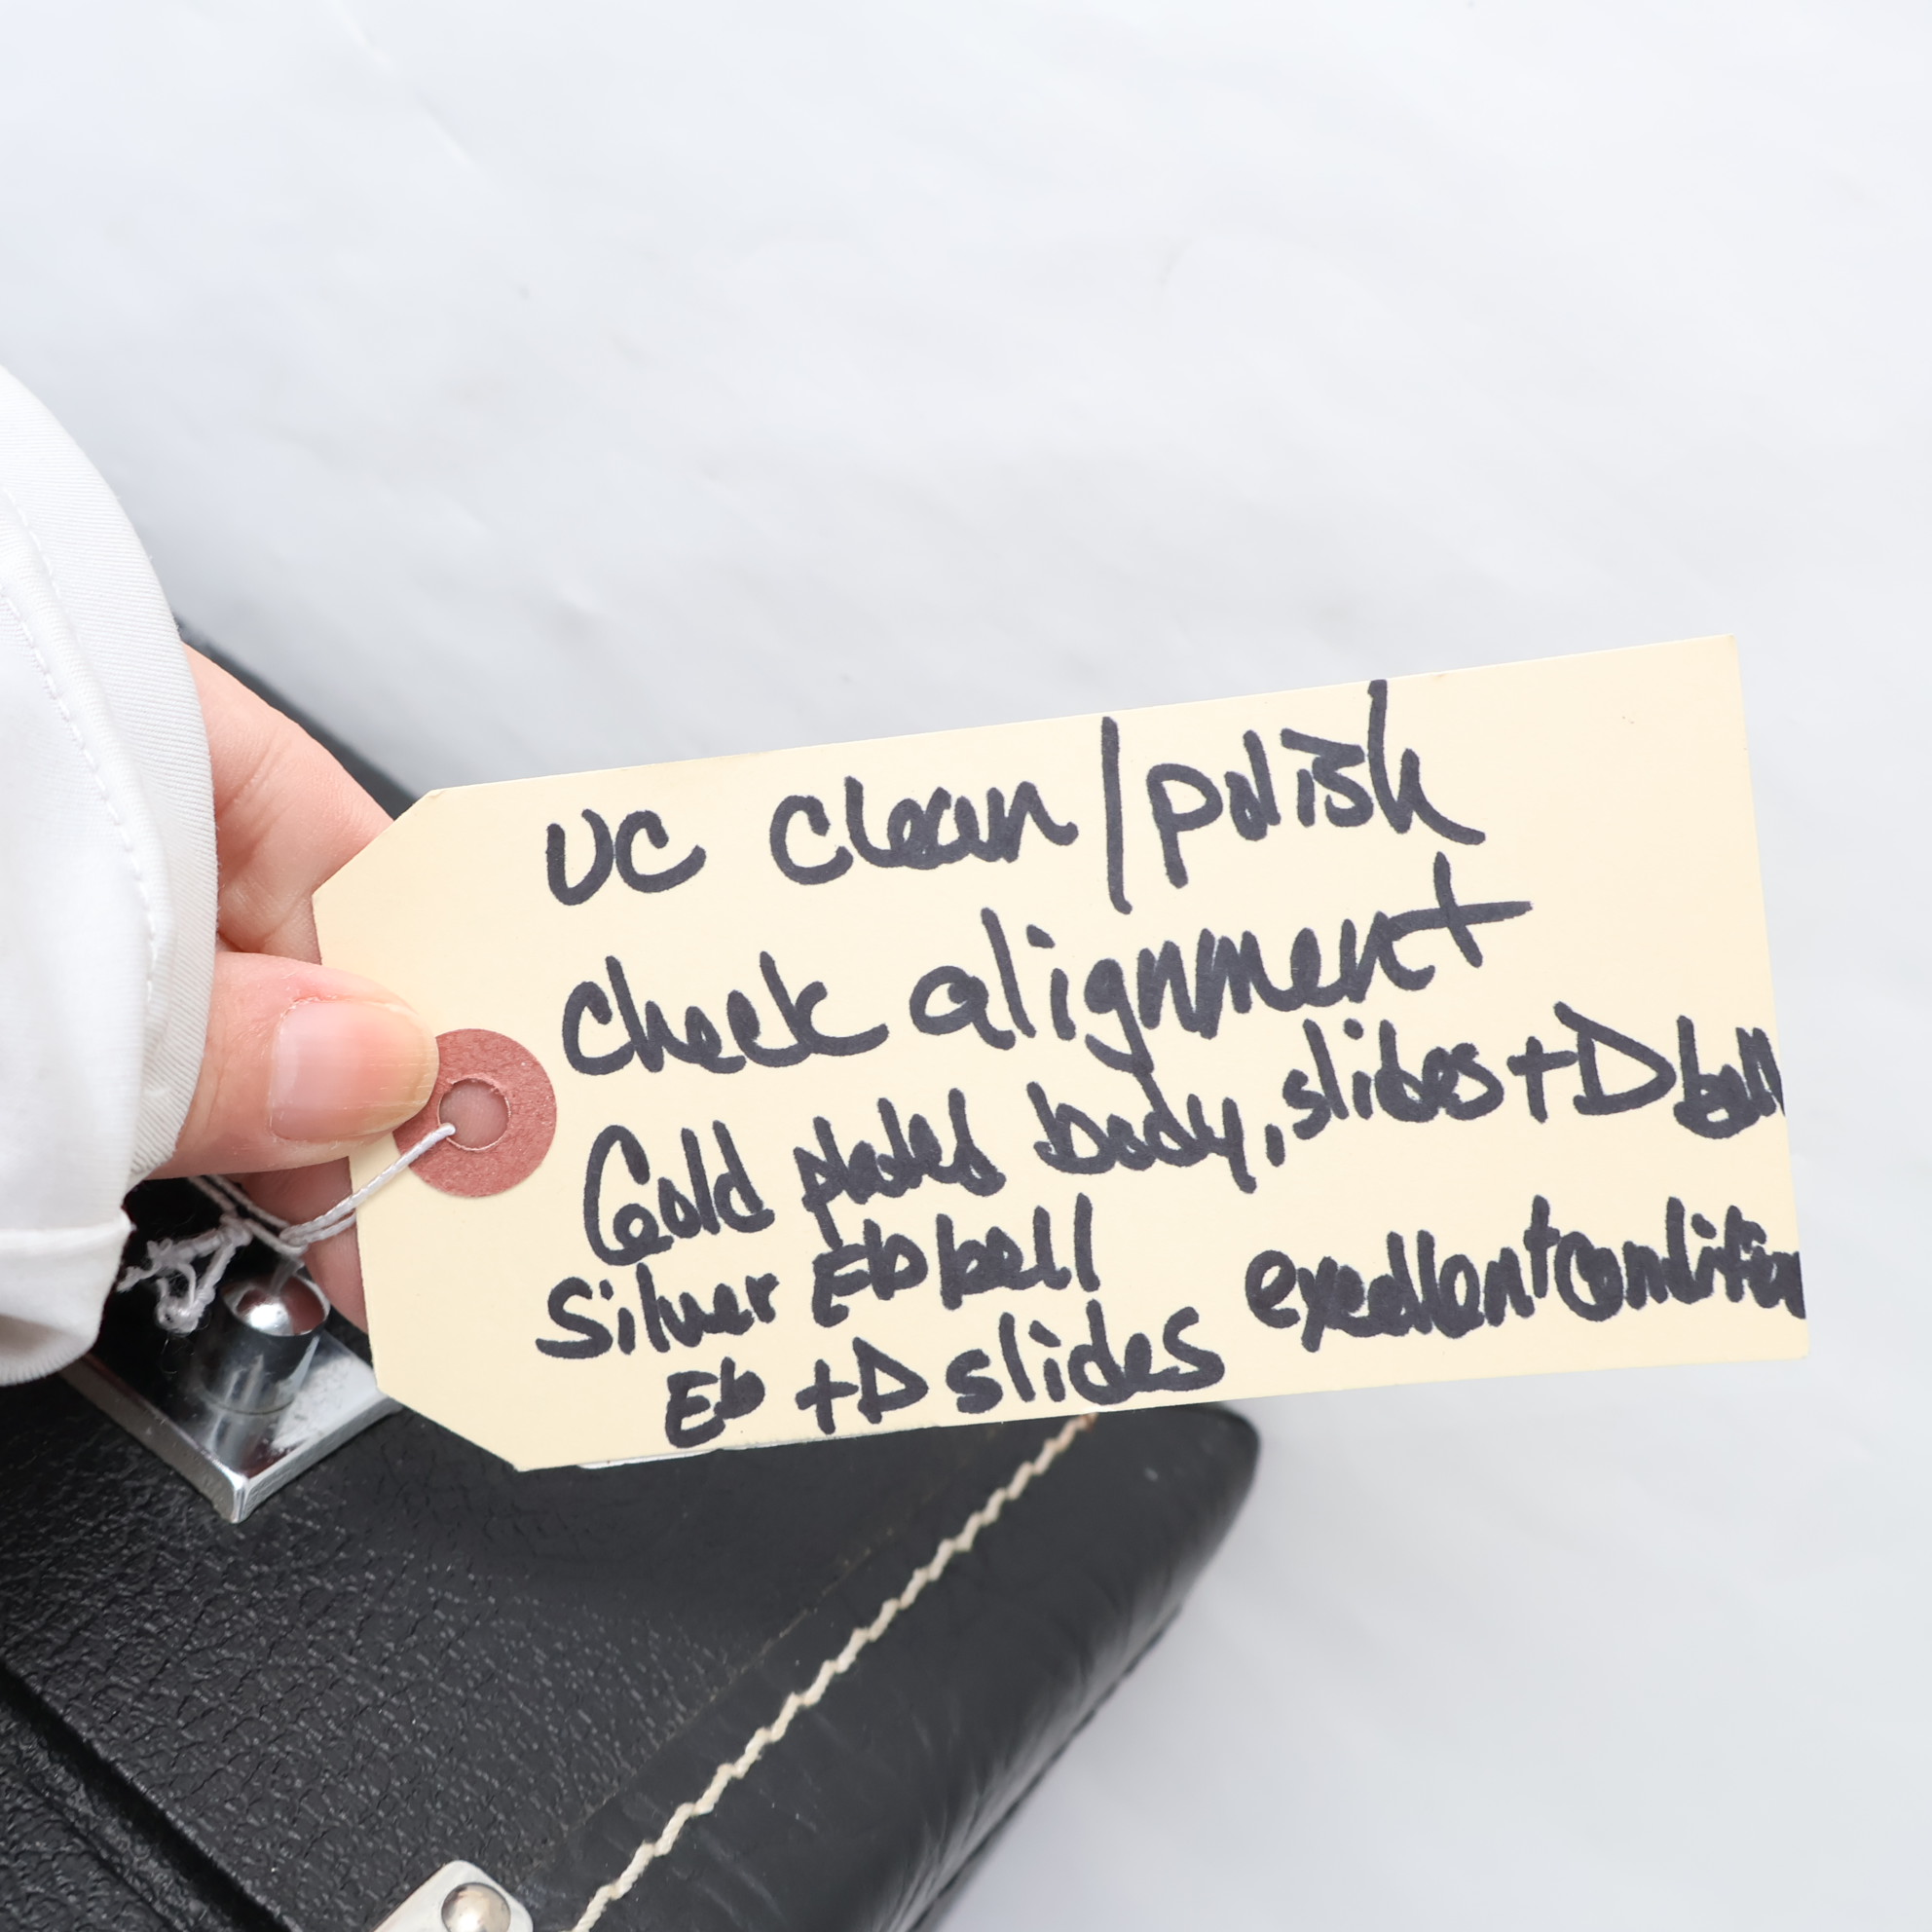 UC Clean/polish
Check alignment
Gold plated body, slides + D bell
Silver Eb bell
excellent condition
Eb + D slides